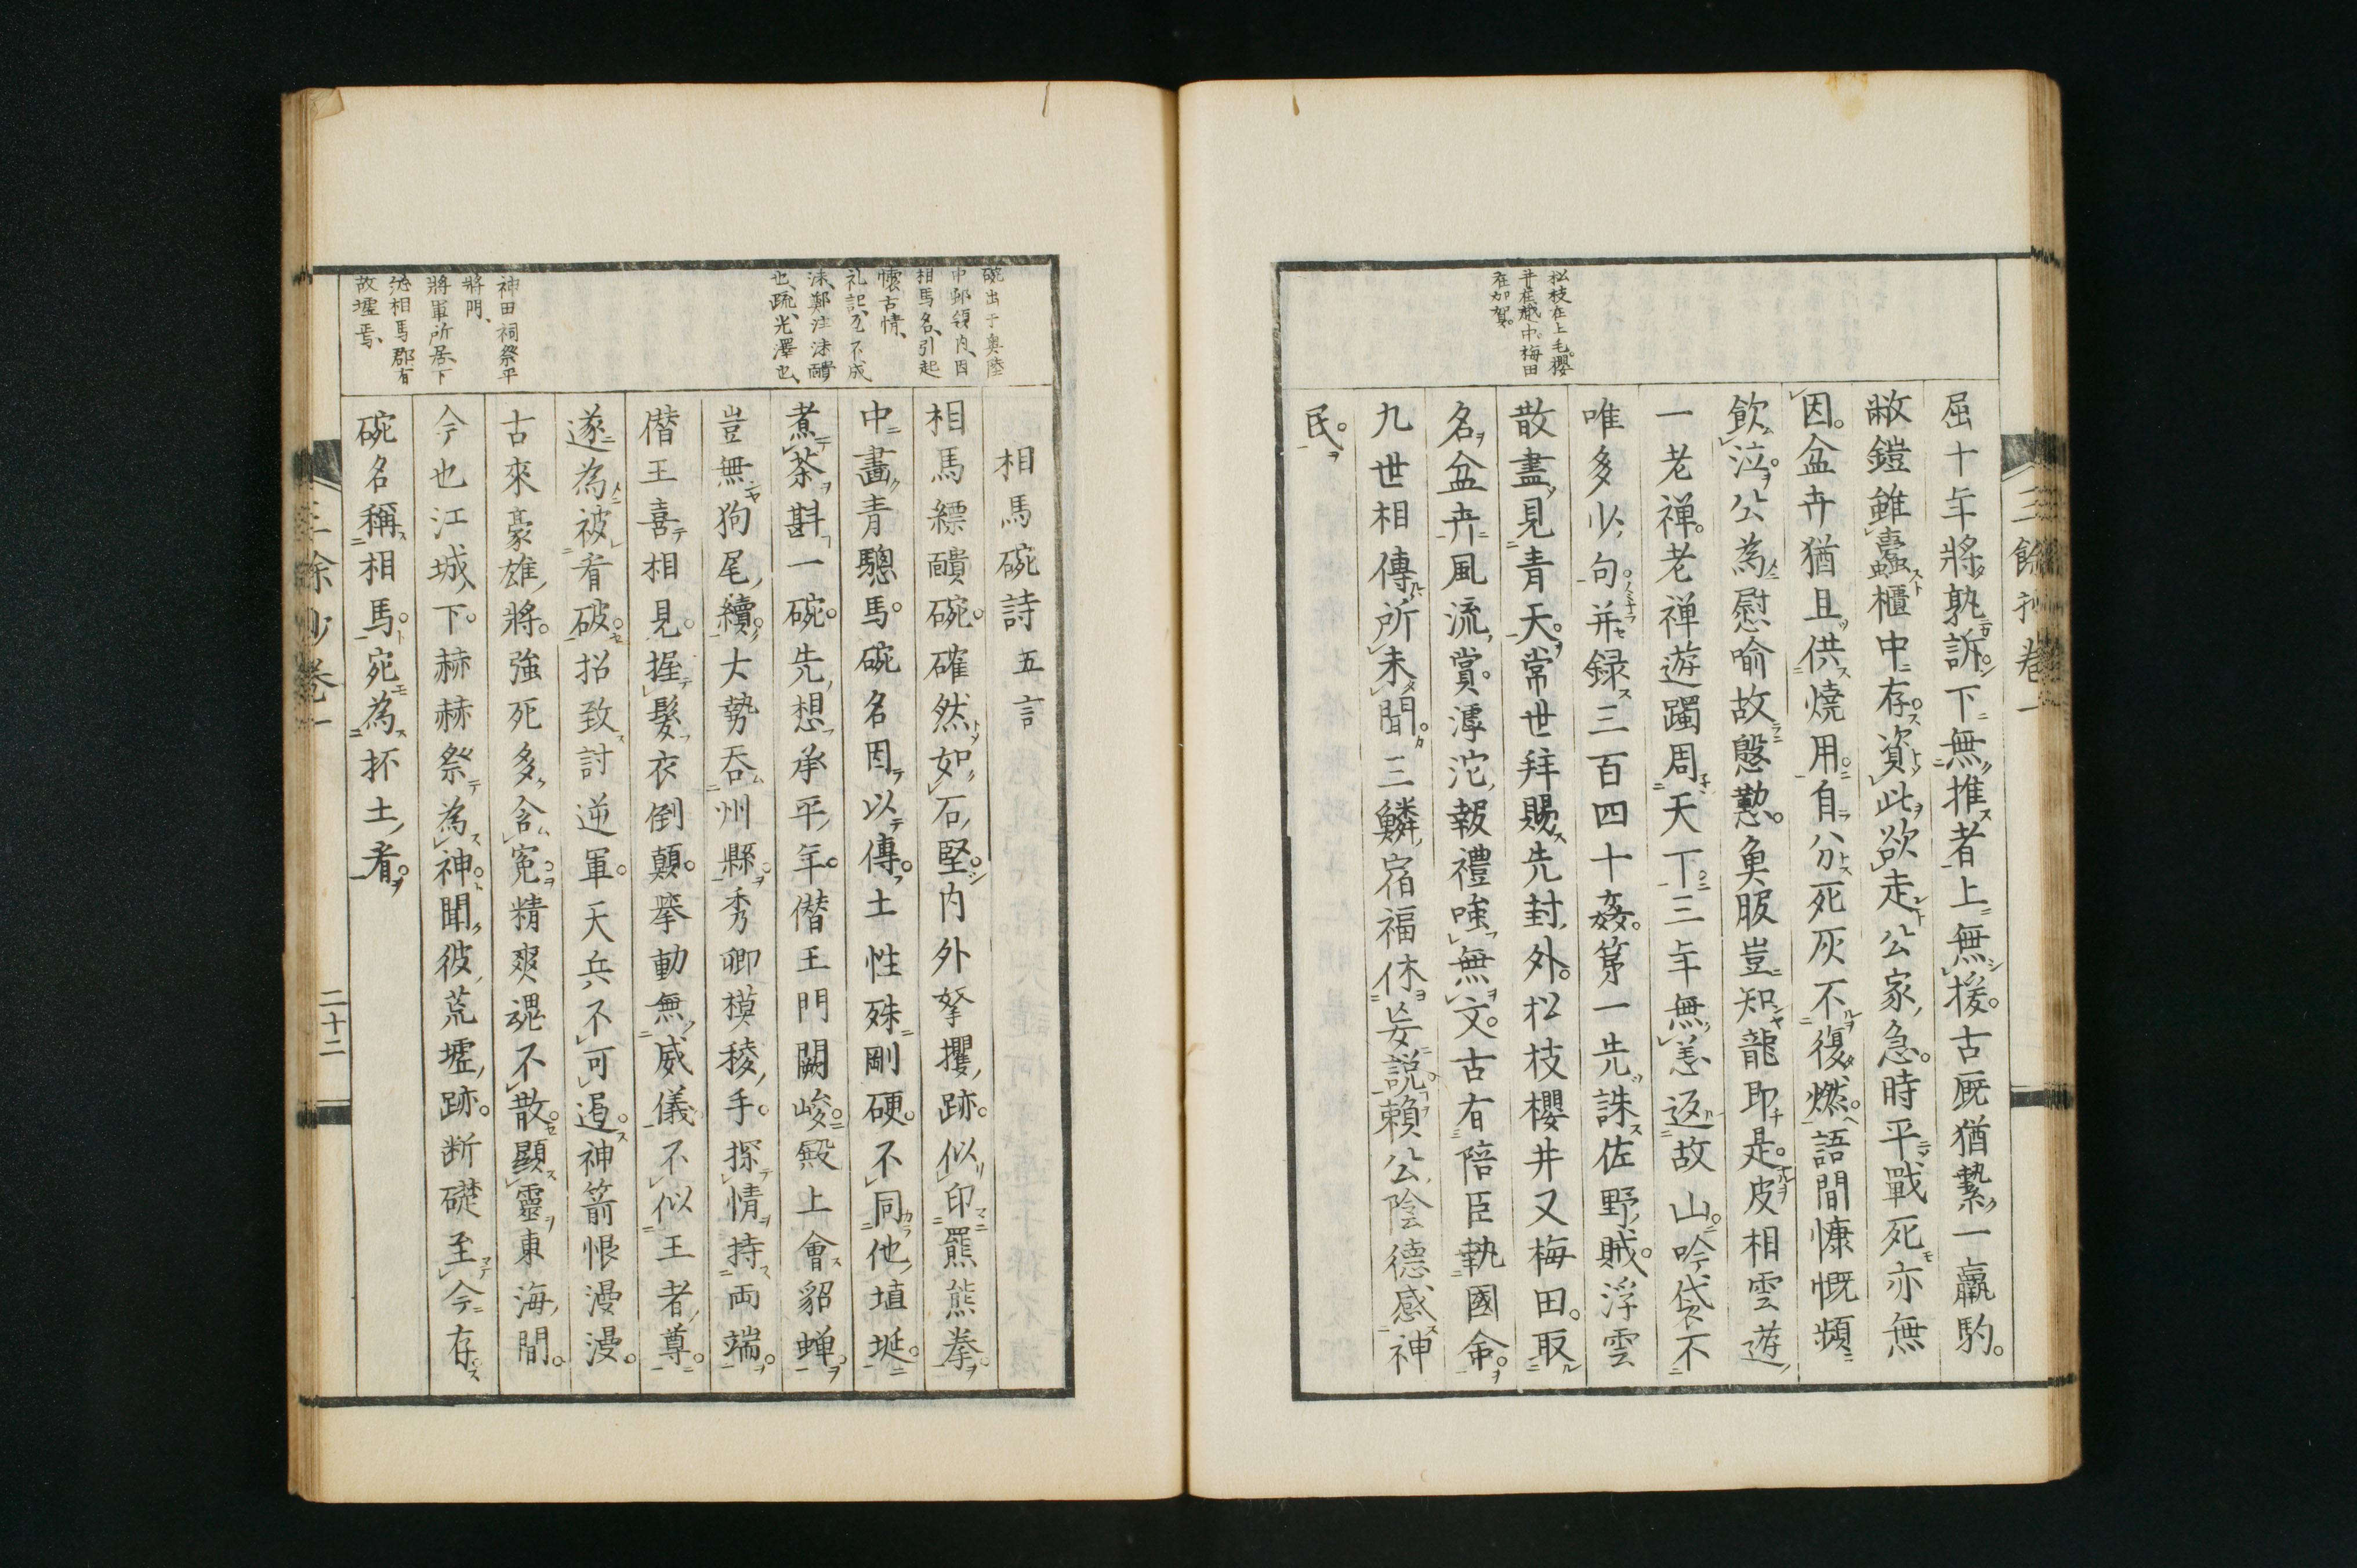 三餘抄卷一
松枝在上毛。櫻
井在越中。梅田
在加賀。
屈十年將孰訴下無推者上無援。古厩猶縶一羸駒。
敝鎧雖蠹櫃中存資此欲走公家急。時平戰死亦無
因。盆卉猶且供燒用自分死灰不復燃語間慷慨頻
飲泣公為慰喻故慇懃。奠服豈知龍即是。皮相雲遊
一老禅。老禅遊躅周天下三年無恙返故山吟袋不
唯多少句并録三百四十姦。第一先誅佐野賊。浮雲
散盡見青天常世拜賜先封外。松枝櫻井又梅田。取
名盆卉風流賞。滹沱報禮嗤無文。古有陪臣執國命
九世相傳所未聞三鱗宿福休妄説賴公陰德感神
民。
碗出于奥陸
中邨領内、因
相馬名、引起
懷古情、
礼記、瓦不成
沬、鄭注沬靧
也、疏、光澤也、
神田祠祭平
將門、
將軍所居、下
總相馬郡有
故墟焉、
相馬碗詩五言
相馬縹靧碗。確然如石堅内外拏攫跡。似印羆熊拳
中畫青驄馬。碗名因以傳。土性殊剛硬。不同他埴埏。
煮茶斟一碗。先想承平年。僭王門闕峻殿上會貂蝉
豈無狗尾續大勢吞州縣秀卿模稜手。探情持両端。
僭王喜相見。握髮衣倒顛。擧動無威儀不似王者尊。
遂為被看破。招致討逆軍。天兵不可遏。神箭恨漫漫。
古來豪雄將。強死多含冤精爽魂不散顯靈東海間。
今也江城下。赫赫祭為神聞彼荒墟跡。断礎至今存
碗名稱相馬宛為抔土看。
三餘抄卷一
二十二